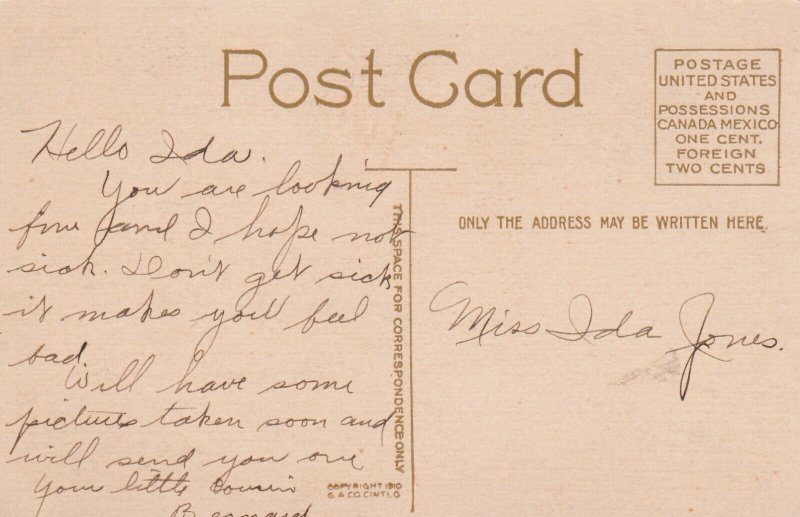 Post Card
POSTAGE
UNITED STATES
AND
POSSESSIONS
CANADA MEXICO
ONE CENT.
FOREIGN
TWO CENTS
Hello Ida.
You are looking
fine and I hope not
sick. Don't get sick
it makes you feel
bad.
Will have some
pictures taken soon and
will send you one
Your little cousin
Bernard
THIS SPACE FOR CORRESPONDENCE ONLY
ONLY THE ADDRESS MAY BE WRITTEN HERE.
Miss Ida Jones.
COPYRIGHT 1910
G. A. CO. CINTI. O.